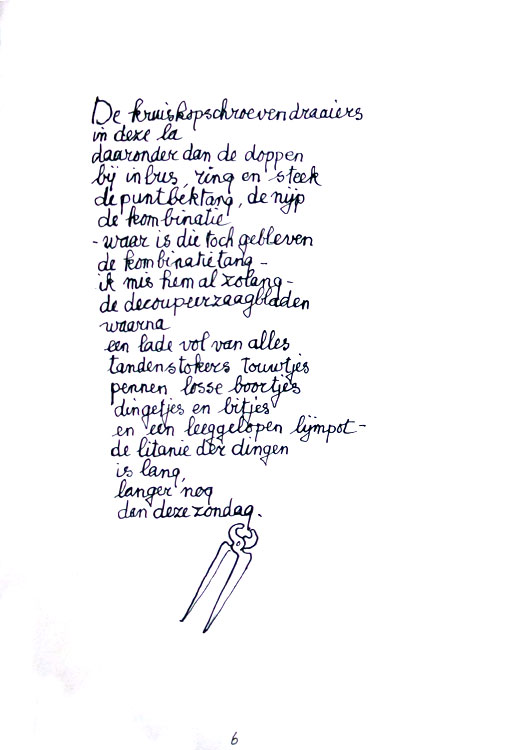 De kruiskopschroevendraaiers
in deze la
daaronder dan de doppen
bij inbus, ring en steek
de puntbektang, de nijp
de kombinatie
- waar is die toch gebleven
de kombinatietang -
ik mis hem al zolang -
de decoupeerzaagbladen
waarna
een lade vol van alles
tandenstokers touwtjes
pennen losse boortjes
dingetjes en bitjes
en een leeggelopen lijmpot -
de litanie der dingen
is lang,
langer nog
dan deze zondag.
6